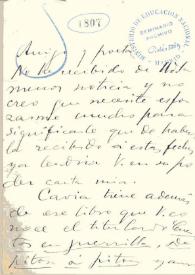 1807
MINISTERIO DE EDUCACION NACIONAL
SEMINARIO
ARCHIVO
Rubén Darío
MADRID
Amigo y poeta:
No he recibido de Ud.
menor noticia y no
creo que necesite esfor
zarme mucho para
significarle que de haber
la recibido a esta fecha,
ya tendría V. en su po
der carta mía.
Cavia tiene además
de ese libro que V. co
noce el titulado: Cuen
tos en guerrilla, de
pitón á pitón y